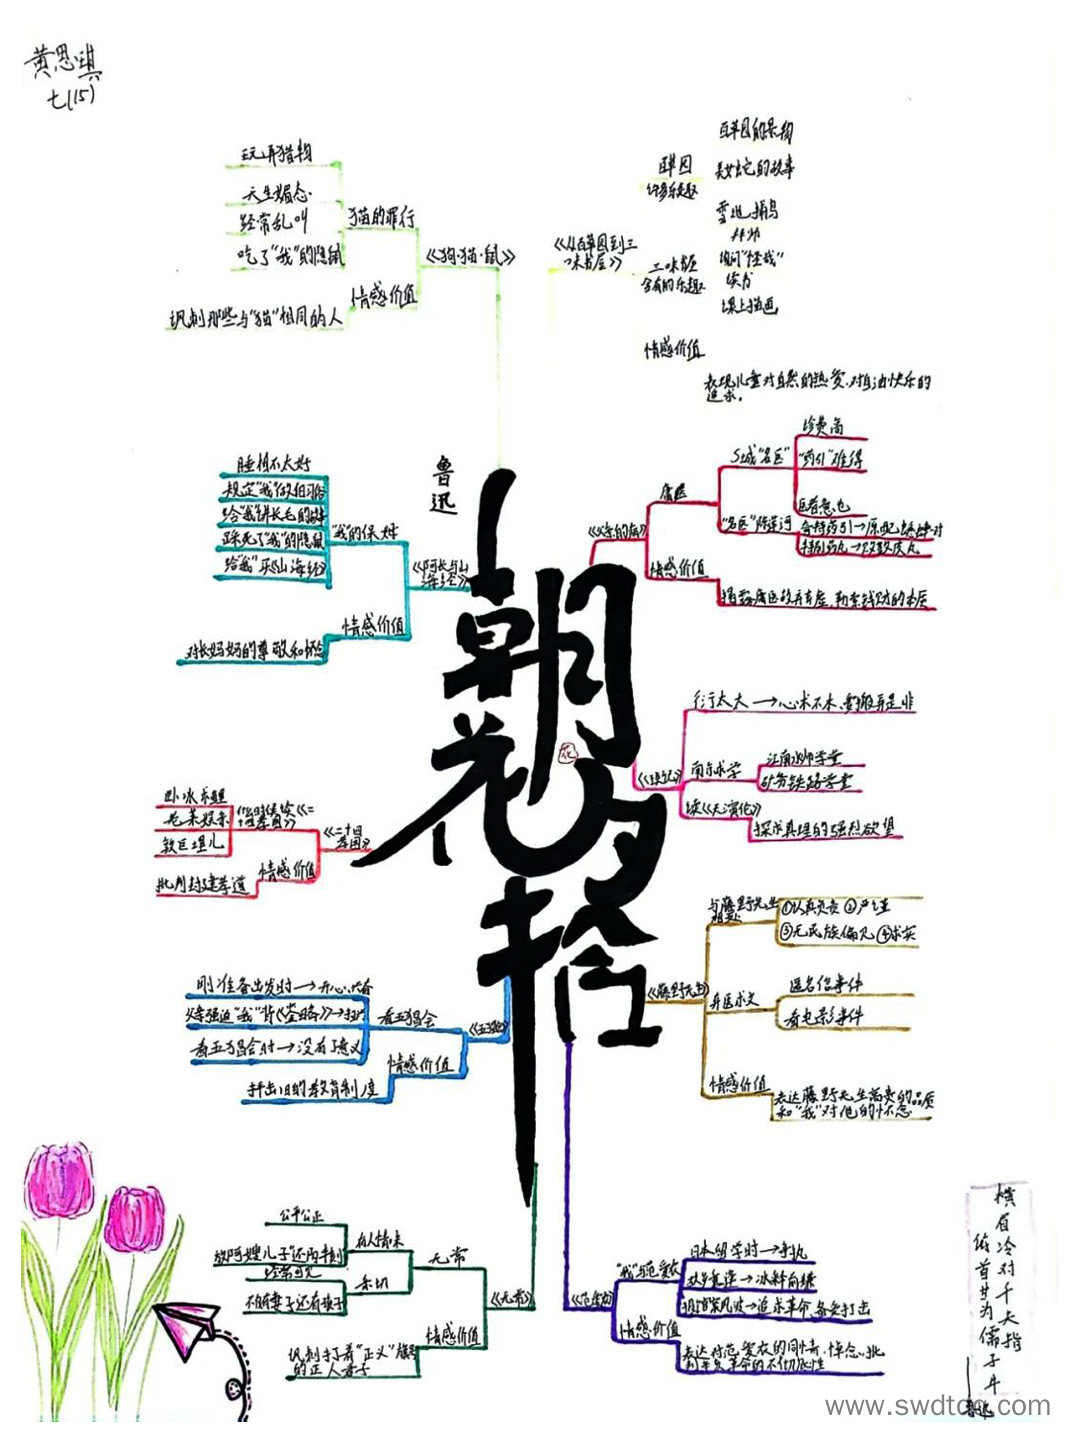 黄思琪
七(15)
玩弄猎物
天生媚态
经常乱叫
吃了"我"的隐鼠
猫的罪行
《狗·猫·鼠》
情感价值
讽刺那些与"猫"相同的人
百草园的景物
美女蛇的故事
雪地捕鸟
许多乐趣
《从百草园到三味书屋》
三味书屋
含有的乐趣
拜师
询问"怪哉"
读书
课上描画
情感价值
表现儿童对自然的热爱,对自由快乐的
追求。
睡相不太好
给"我"讲长毛的故事
踩死了"我"的隐鼠
给"我"买《山海经》
"我"的保姆
《阿长与山
海经》
情感价值
对长妈妈的尊敬和怀念
鲁迅
朝花夕拾
花
诊费高
S城"名医"
"药引"难得
医者意也
"名医"陈莲河
庸医
《父亲的病》
情感价值
衍太太→心术不
搬弄是非
南京求学
江南水师学堂
矿务铁路学堂
《琐记》
读《天演论》
探求真理的强烈欲望
卧冰求鲤
老莱娱亲
《二十四
孝图》
情感价值
批判封建孝道
与藤野先生
相处
①认真负责 ②严谨
③无民族偏见 ④求实
《藤野先生》
弃医求文
匿名信事件
看电影事件
情感价值
表达藤野先生高贵的品质
和"我"对他的怀念
刚准备出发时→开心、
看五猖会时→没有了意义
看五猖会
《五猖会》
情感价值
抨击旧的教育制度
公平公正
放阿嫂儿子"还阳半刻"
有人情味
经常可见
不但有妻子还有孩子
亲切
无常
《无常》
情感价值
讽刺打着"正义"旗号
的正人君子
"我"与范爱农
日本留学时→争执
《范爱农》
情感价值
表达对范爱农的同情、悼念、批
横眉冷对千夫指
俯首甘为孺子牛
鲁迅
www.swdtcq.com